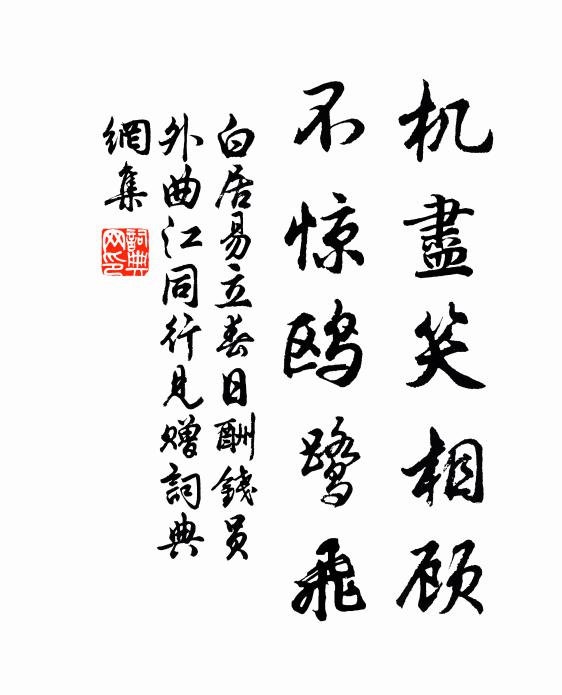 机盡笑相顾
不惊鸥鹭飛
白居易立春日酬錢员
外曲江同行見赠詞典
網集
詞典
网印